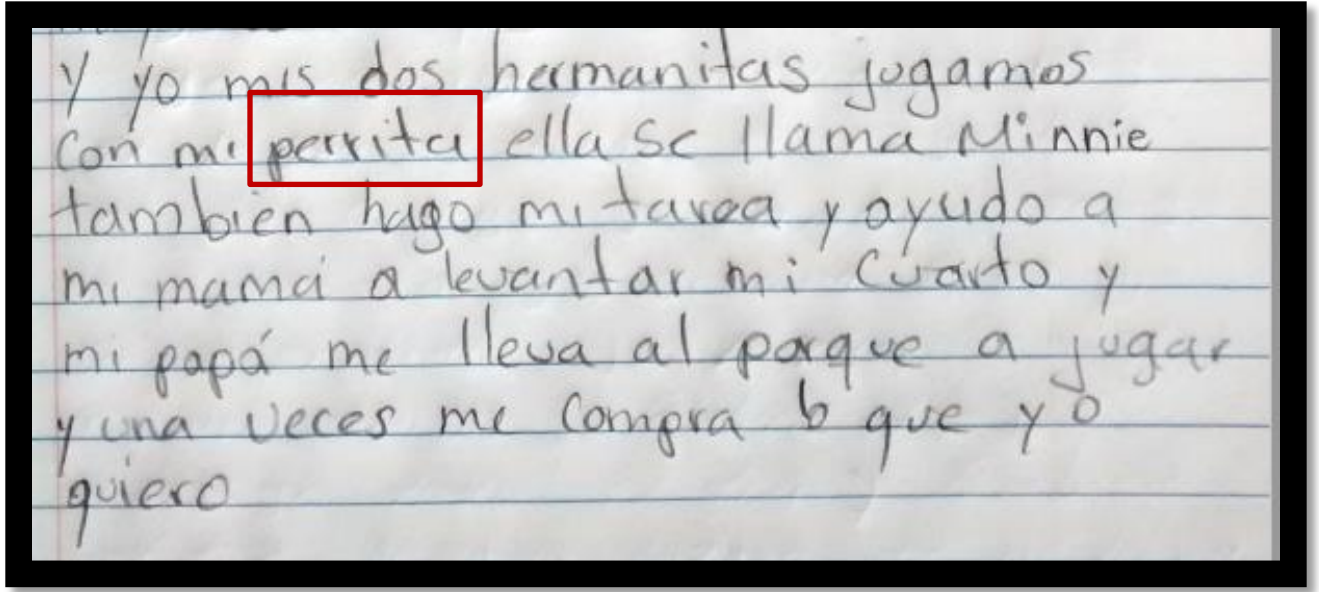 y yo mis dos hermanitas jugamos
con mi perrita ella se llama Minnie
también hago mi tarea y ayudo a
mi mamá a levantar mi cuarto y
mi papá me lleva al parque a jugar
y una veces me compra lo que yo
quiero